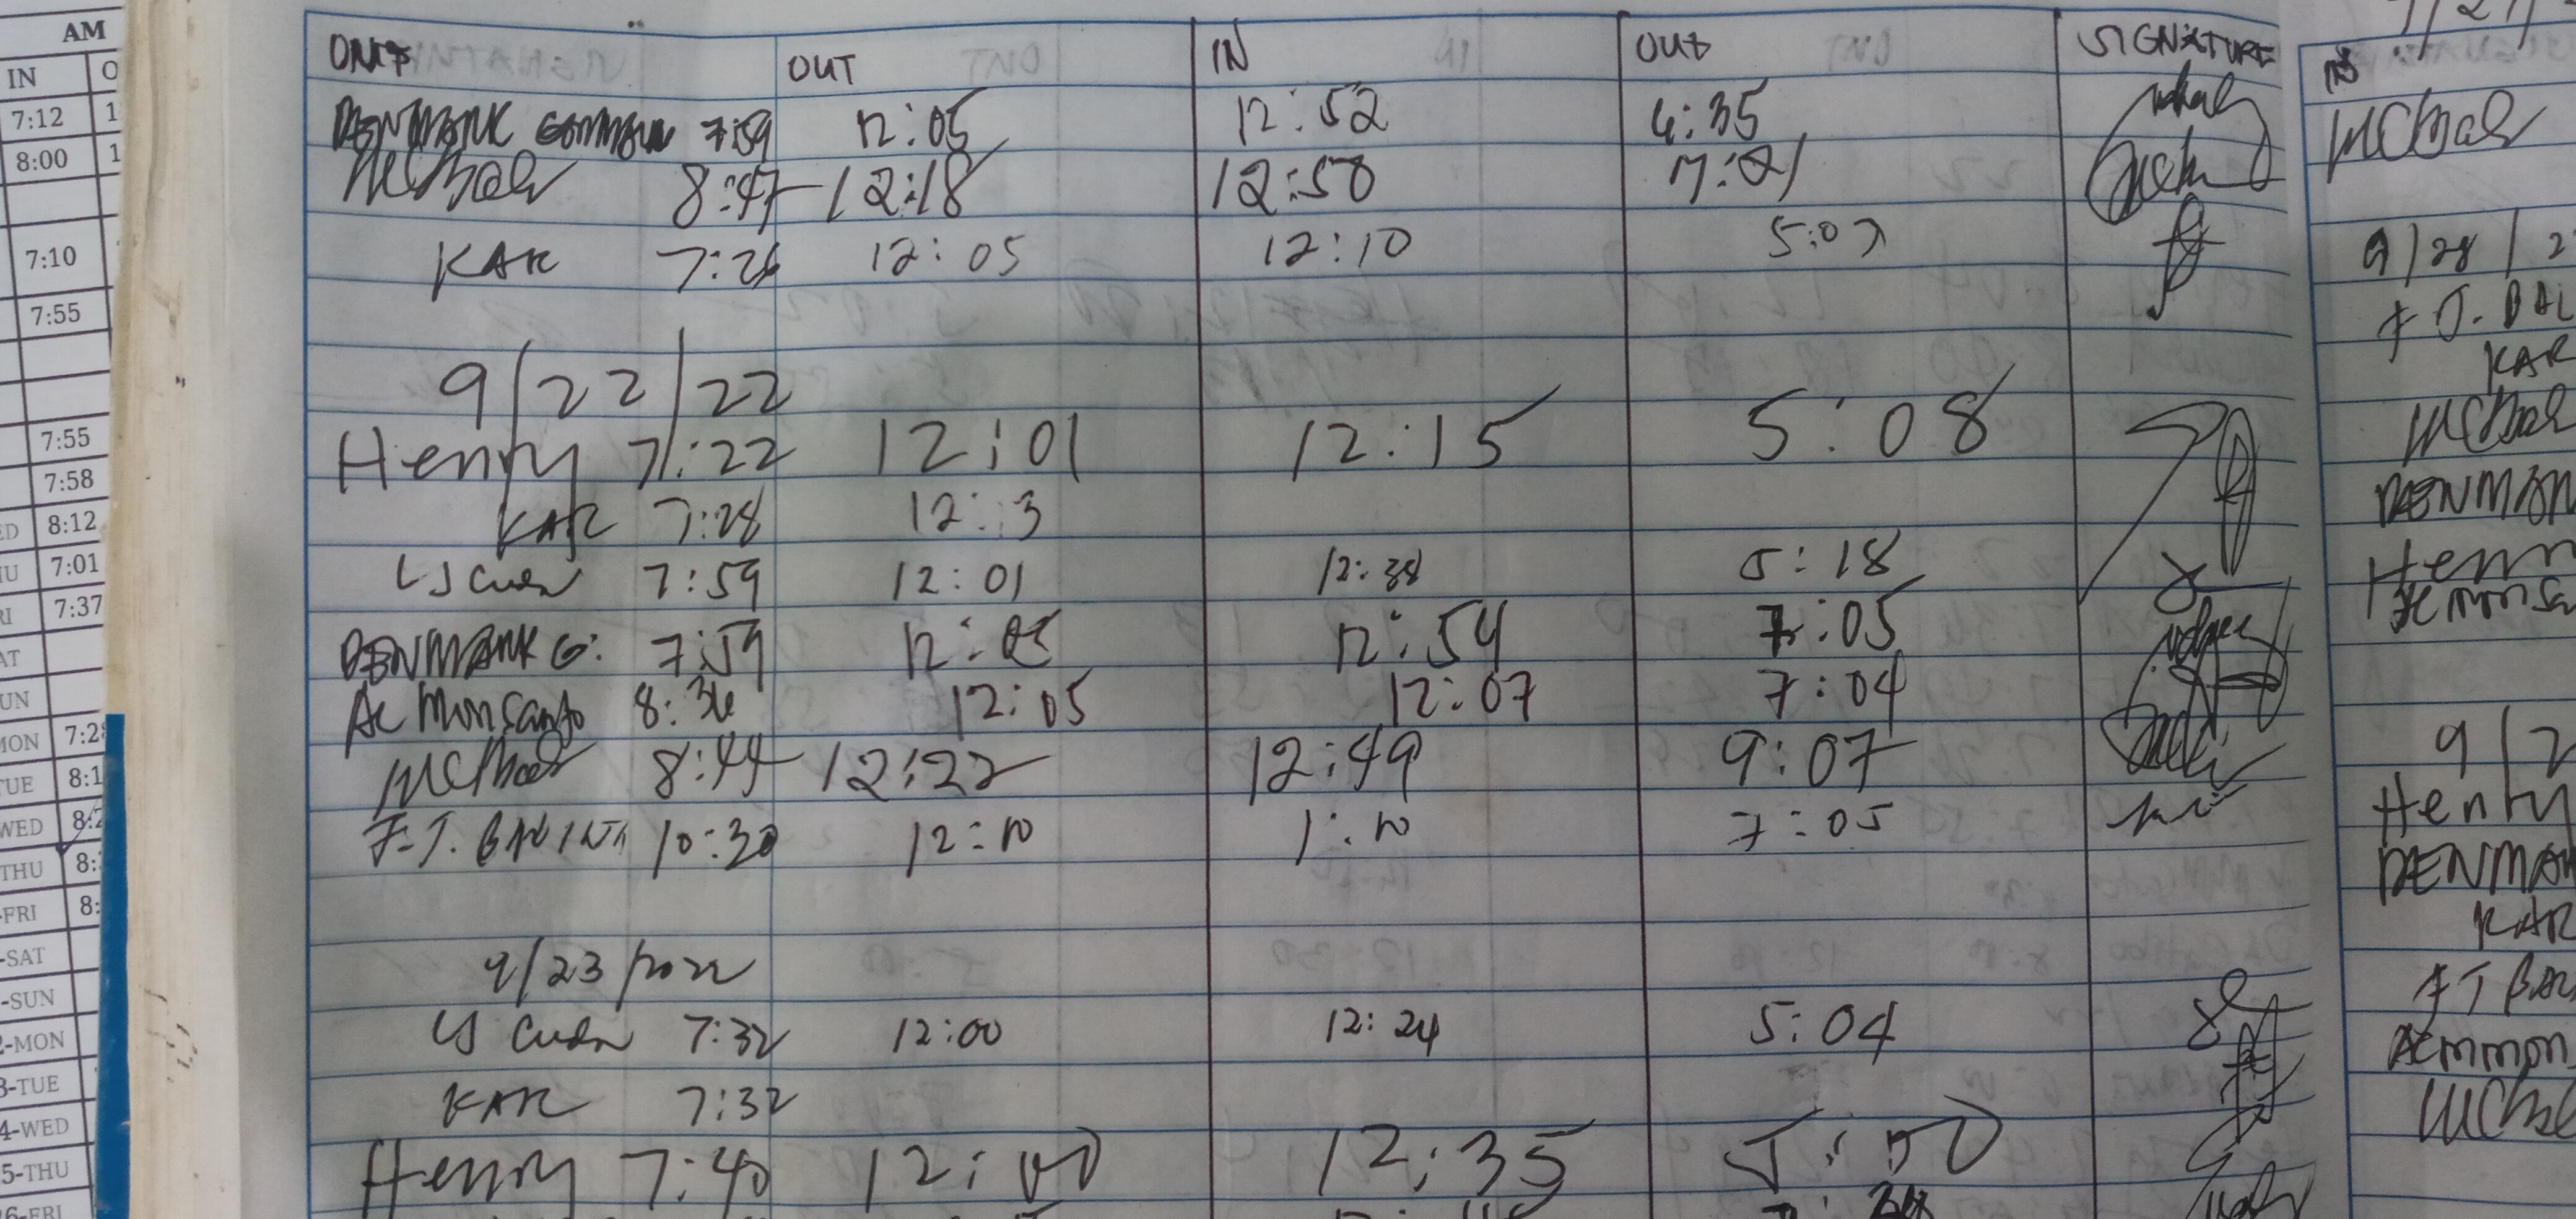 AM
IN O
7:12 1
8:00 1
7:10
7:55
7:55
7:58
ED 8:12
IU 7:01
RI 7:37
AT
UN
MON 7:28
TUE 8:1
WED 8:2
THU 8:
-FRI 8:
-SAT
-SUN
2-MON
3-TUE
4-WED
5-THU
6-FRI
OUT IN OUT SIGNATURE
DENMARK 7:59 12:05 12:52 4:35
McBal 8:47 12:18 12:50 7:01
KAR 7:26 12:05 12:10 5:07
9/22/22
Henry 7:22 12:01 12:15 5:08
KAR 7:28 12:13
LJ Cuen 7:59 12:01 12:38 5:18
DENMARK G. 7:59 12:05 12:54 7:05
AC Monsanto 8:36 12:05 12:07 7:04
McBal 8:44 12:22 12:49 9:07
F.J. 10:30 12:10 1:10 7:05
9/23/2022
LJ Cuen 7:32 12:00 12:24 5:04
KAR 7:32
Henry 7:40 12:00 12:35 5:50
IN
McBal
9/28/2
F J. BAL
KAR
McBal
DENMAR
Henr
AC Monsa
9/2
Henry
DENMAR
KAR
F J BAL
AC Mon